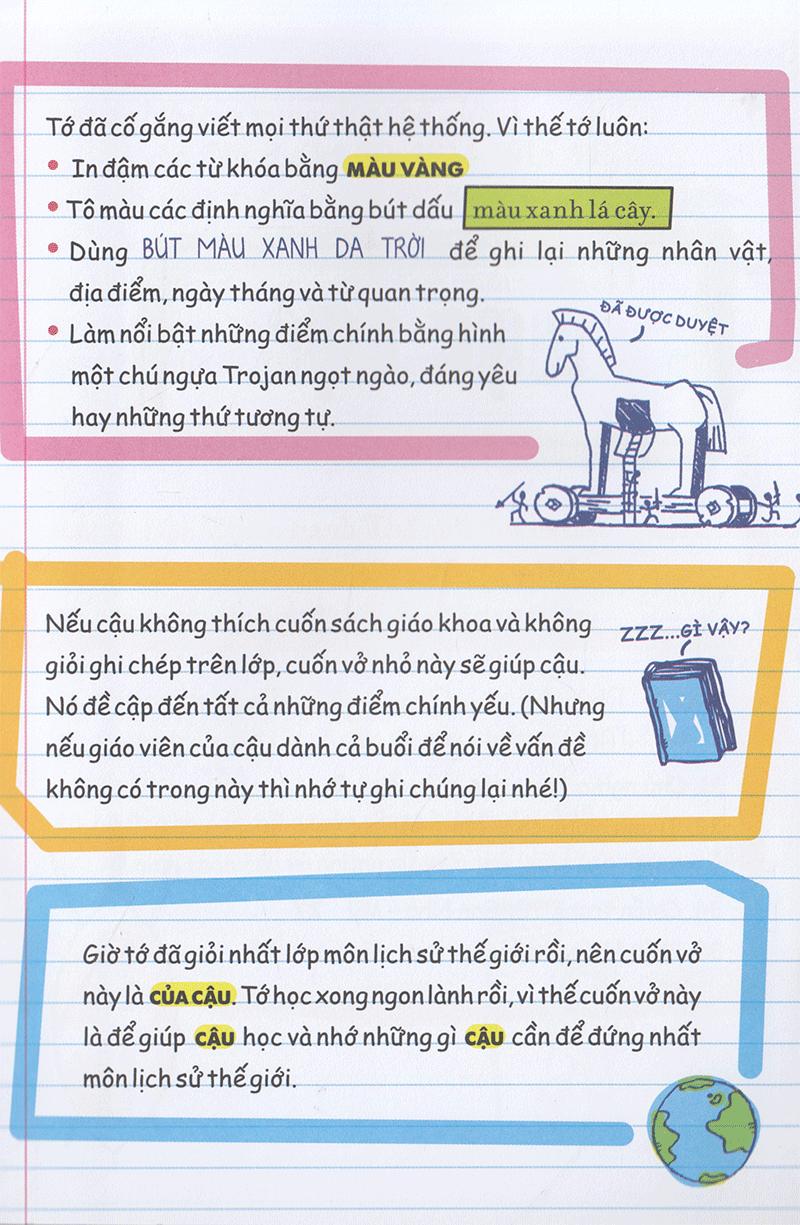 Tớ đã cố gắng viết mọi thứ thật hệ thống. Vì thế tớ luôn:
• In đậm các từ khóa bằng MÀU VÀNG
• Tô màu các định nghĩa bằng bút dấu màu xanh lá cây.
• Dùng BÚT MÀU XANH DA TRỜI để ghi lại những nhân vật,
địa điểm, ngày tháng và từ quan trọng.
ĐÃ ĐƯỢC DUYỆT
• Làm nổi bật những điểm chính bằng hình
một chú ngựa Trojan ngọt ngào, đáng yêu
hay những thứ tương tự.
Nếu cậu không thích cuốn sách giáo khoa và không
giỏi ghi chép trên lớp, cuốn vở nhỏ này sẽ giúp cậu.
Nó đề cập đến tất cả những điểm chính yếu. (Nhưng
nếu giáo viên của cậu dành cả buổi để nói về vấn đề
không có trong này thì nhớ tự ghi chúng lại nhé!)
ZZZ...GÌ VẬY?
Giờ tớ đã giỏi nhất lớp môn lịch sử thế giới rồi, nên cuốn vở
này là CỦA CẬU. Tớ học xong ngon lành rồi, vì thế cuốn vở này
là để giúp CẬU học và nhớ những gì CẬU cần để đứng nhất
môn lịch sử thế giới.